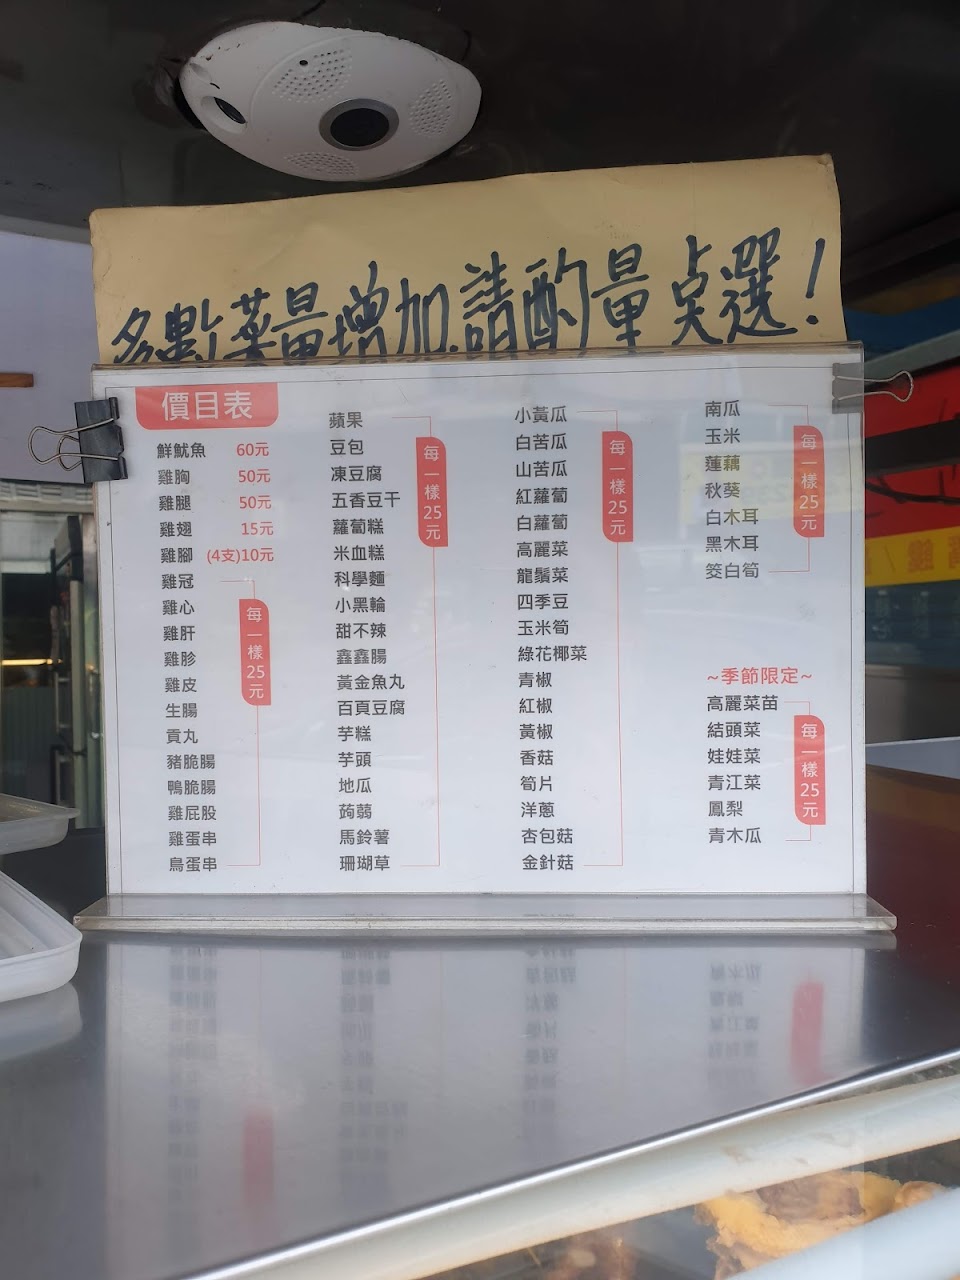 多數菜量增加,請酌量点選!
價目表
鮮魷魚 60元
雞胸 50元
雞腿 50元
雞翅 15元
雞腳 (4支)10元
雞冠
雞心
雞肝
雞胗
雞皮
生腸
貢丸
豬脆腸
鴨脆腸
雞屁股
雞蛋串
鳥蛋串
每一樣25元
蘋果
豆包
凍豆腐
五香豆干
蘿蔔糕
米血糕
科學麵
小黑輪
甜不辣
鑫鑫腸
黃金魚丸
百頁豆腐
芋糕
芋頭
地瓜
蒟蒻
馬鈴薯
珊瑚草
每一樣25元
小黃瓜
白苦瓜
山苦瓜
紅蘿蔔
白蘿蔔
高麗菜
龍鬚菜
四季豆
玉米筍
綠花椰菜
青椒
紅椒
黃椒
香菇
筍片
洋蔥
杏包菇
金針菇
每一樣25元
南瓜
玉米
蓮藕
秋葵
白木耳
黑木耳
筊白筍
每一樣25元
~季節限定~
高麗菜苗
結頭菜
娃娃菜
青江菜
鳳梨
青木瓜
每一樣25元